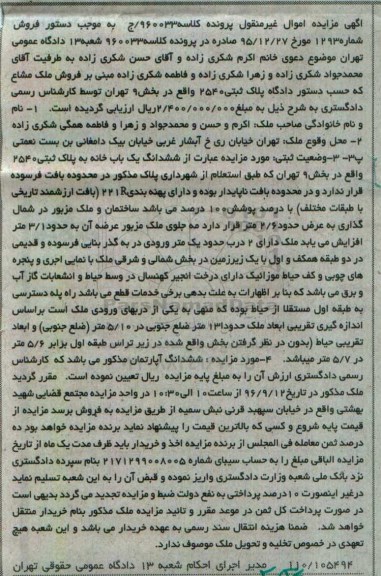 آگهی مزایده اموال غیرمنقول پرونده کلاسه ۹۶۰۰۳۳/ج به موجب دستور فروش
شماره ۱۲۹۳ مورخ ۹۵/۱۲/۲۷ صادره در پرونده کلاسه ۹۶۰۰۳۳ شعبه ۱۳ دادگاه عمومی
تهران موضوع دعوی خانم اکرم شکری زاده و آقای حسن شکری زاده به طرفیت آقای
محمدجواد شکری زاده و زهرا شکری زاده و فاطمه شکری زاده مبنی بر فروش ملک مشاع
که حسب دستور دادگاه پلاک ثبتی ۲۵۴۰ واقع در بخش ۹ تهران توسط کارشناس رسمی
دادگستری به شرح ذیل به مبلغ ۲/۴۰۰/۰۰۰/۰۰۰ ریال ارزیابی گردیده است. ۱- نام
و نام خانوادگی صاحب ملک: اکرم و حسن و محمدجواد و زهرا و فاطمه همگی شکری زاده
۲- محل وقوع ملک: تهران خیابان ری خ آبشار غربی خیابان بیک دامغانی بن بست نعمتی
پ ۳- ۳-وضعیت ثبتی: مورد مزایده عبارت از ششدانگ یک باب خانه به پلاک ثبتی ۲۵۴۰
واقع در بخش ۹ تهران که طبق استعلام از شهرداری پلاک مذکور در محدوده بافت فرسوده
قرار ندارد و در محدوده بافت ناپایدار بوده و دارای پهنه بندی R۲۲۱ (بافت ارزشمند تاریخی
با طبقات مختلف) با درصد پوشش ۱۰۰ درصد می باشد ساختمان و ملک مزبور در شمال
گذاری به عرض حدود ۲/۶ متر قرار دارد مه جلوی ملک مزبور عرضه آن به حدود ۳/۱ متر
افزایش می یابد ملک دارای ۲ درب حدود یک متر ورودی در به گذر بنایی فرسوده و قدیمی
در دو طبقه همکف و اول با یک زیرزمین در بخش شمالی و شرقی ملک با نمایی آجری و پنجره
های چوبی و کف حیاط موزائیک دارای درخت انجیر کهنسال در وسط حیاط و انشعابات گاز آب
و برق می باشد که بنا بر اظهارات به علت بدهی برخی خدمات قطع می باشد راه پله دسترسی
به طبقه اول مستقلا از حیاط بوده که منتهی به یکی از دربهای ورودی ملک است براساس
اندازه گیری تقریبی ابعاد ملک حدودا ۱۳ متر ضلع جنوبی در ۵/۱۰ متر (ضلع جنوبی) و ابعاد
تقریبی حیاط (بدون در نظر گرفتن بخش واقع شده در زیر تراس طبقه اول برابر ۵/۶ متر
در ۵/۷ متر میباشد. ۴-مورد مزایده: ششدانگ آپارتمان مذکور می باشد که کارشناس
رسمی دادگستری ارزش آن را به مبلغ پایه مزایده ریال تعیین نموده است. مقرر گردید
ملک مذکور در تاریخ ۹۶/۹/۱۲ از ساعت ۱۰ الی ۱۰:۳۰ در واحد مزایده مجتمع قضایی شهید
بهشتی واقع در خیابان سپهبد قرنی نبش سمیه از طریق مزایده به فروش برسد مزایده از
قیمت پایه شروع و کسی که بالاترین قیمت را پیشنهاد نماید برنده مزایده خواهد بود ده
درصد ثمن معامله فی المجلس از برنده مزایده اخذ و خریدار باید ظرف مدت یک ماه از تاریخ
مزایده الباقی مبلغ را به حساب سیبای شماره ۲۱۷۱۲۹۹۰۰۸۰۰۵ بنام سپرده دادگستری
نزد بانک ملی شعبه وزارت دادگستری واریز نموده و قبض آن را به این شعبه تسلیم نماید
درغیر اینصورت ۱۰ درصد پرداختی به نفع دولت ضبط و مزایده تجدید می گردد بدیهی است
در صورت پرداخت کل ثمن در موعد مقرر و تائید مزایده ملک مذکور بنام خریدار منتقل
خواهد شد. ضمنا هزینه انتقال سند رسمی به عهده خریدار می باشد و این شعبه هیچ
تعهدی در خصوص تخلیه و تحویل ملک موصوف ندارد.
۱۰۵۴۹۴/ مدیر اجرای احکام شعبه ۱۳ دادگاه عمومی حقوقی تهران